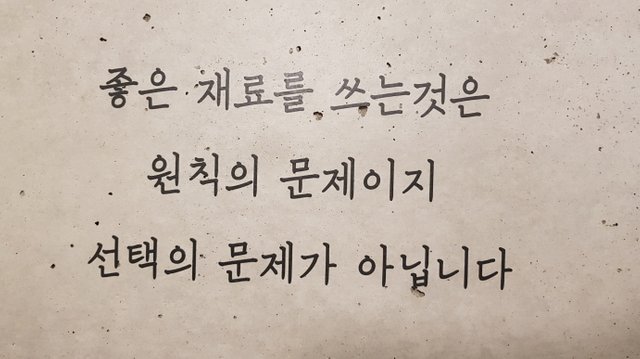 좋은 재료를 쓰는것은
원칙의 문제이지
선택의 문제가 아닙니다